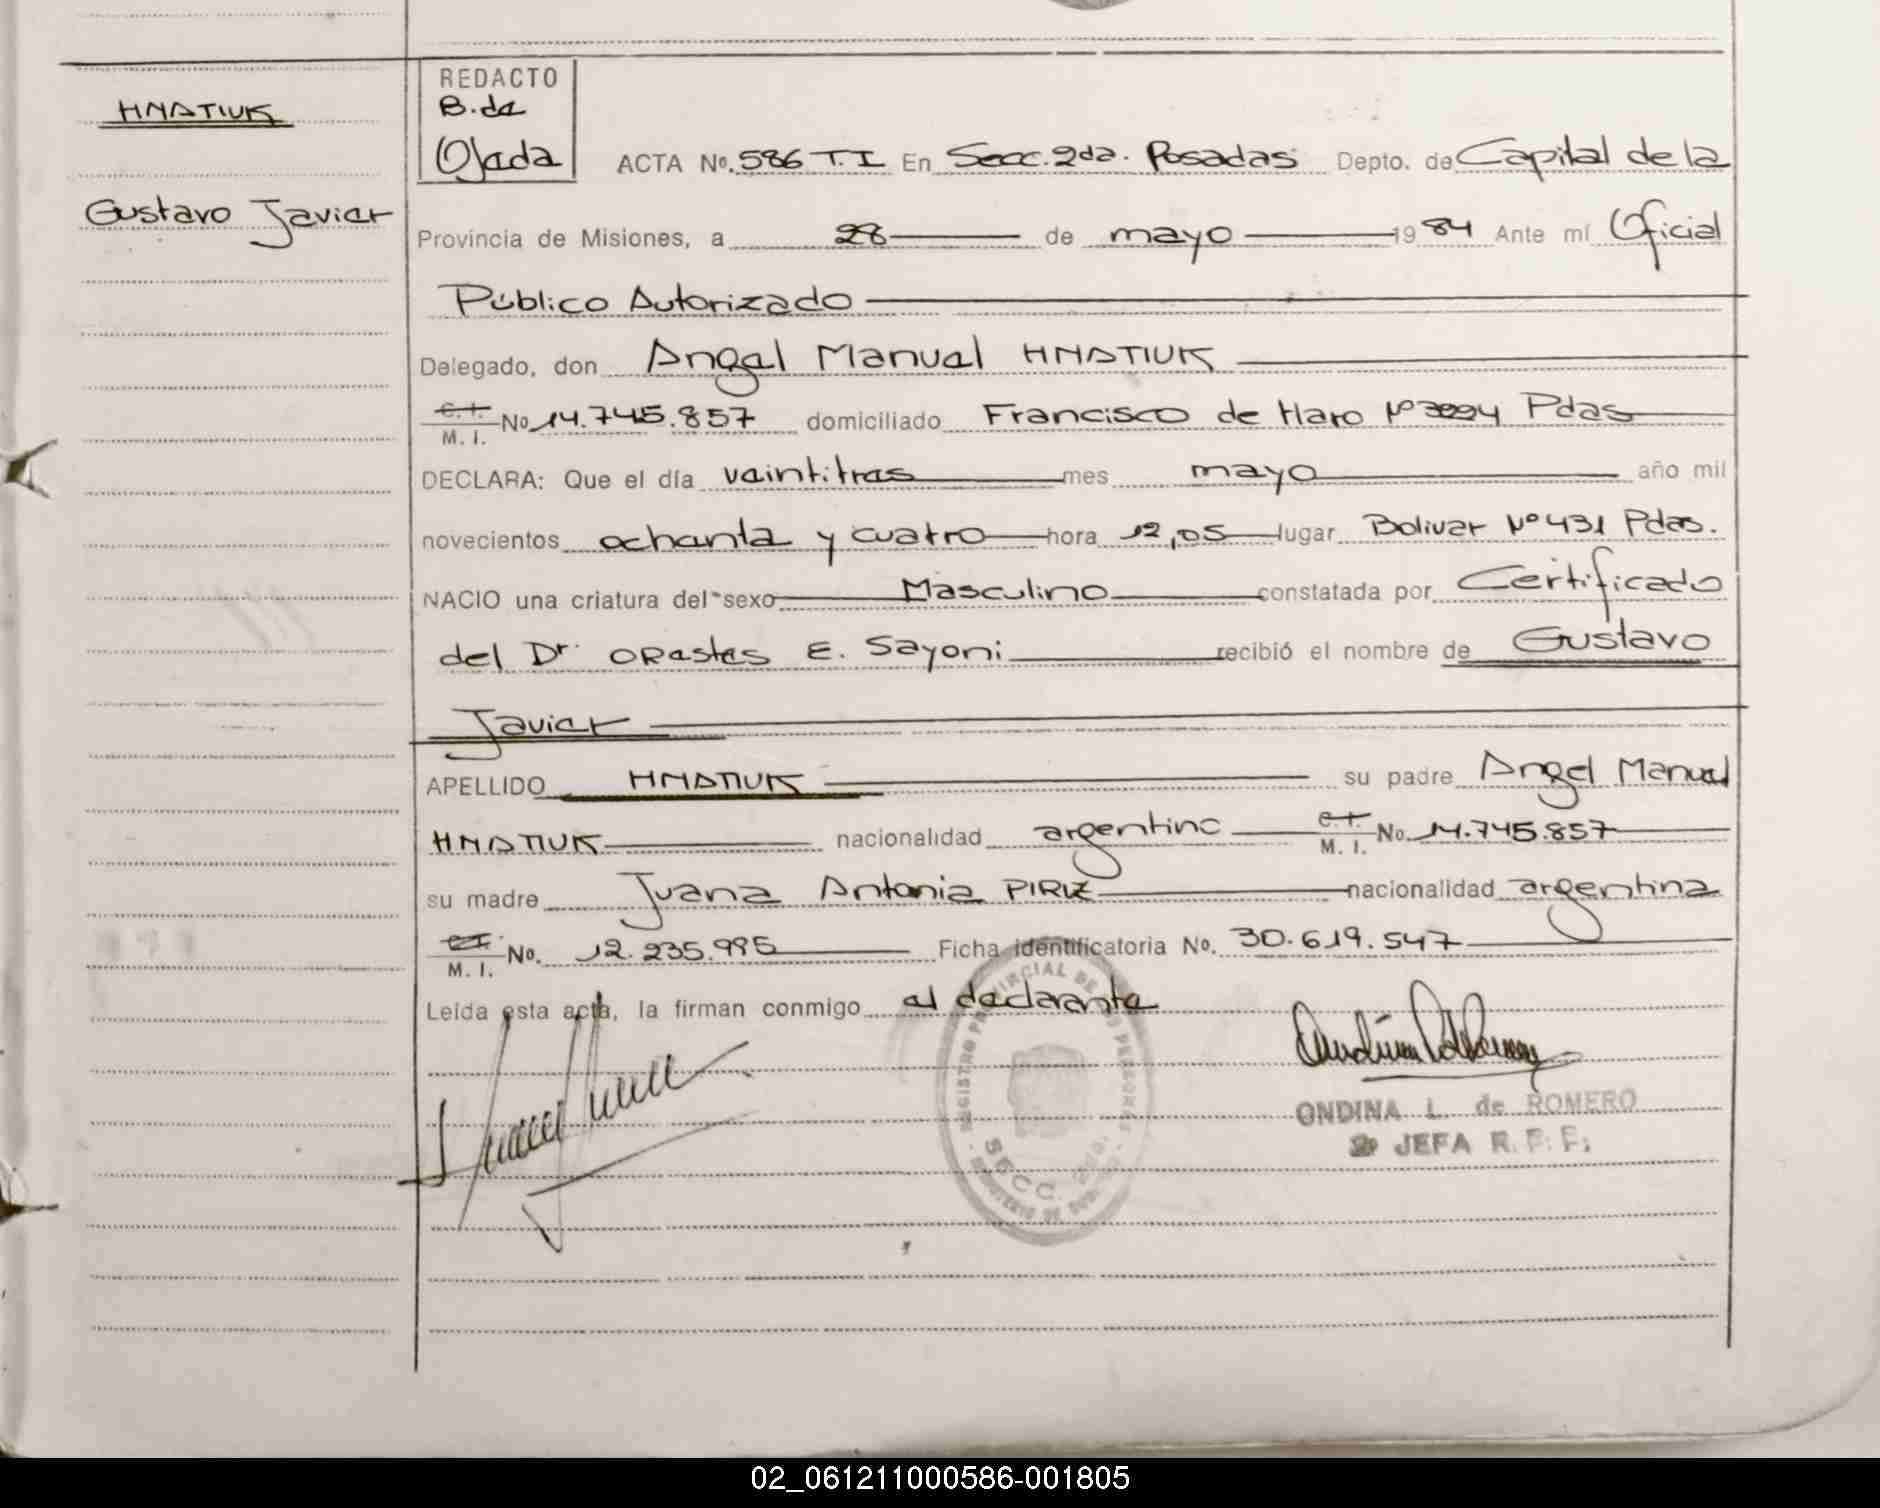 HNATIUK
Gustavo Javier
REDACTO
B. de
Ojeda
ACTA No. 586 T. I En Secc. 2da. Posadas Depto. de Capital de la
Provincia de Misiones, a 28 de mayo 1984 Ante mí Oficial
Público Autorizado
Delegado, don Angel Manuel HNATIUK
C. I.
M. I. No 14.745.857 domiciliado Francisco de Haro Nº Pdas
DECLARA: Que el día veintitres mes mayo año mil
novecientos ochenta y cuatro hora 12,05 lugar Bolivar Nº 431 Pdas.
NACIO una criatura del sexo Masculino constatada por Certificado
del Dr. Orestes E. Sayoni recibió el nombre de Gustavo
Javier
APELLIDO HNATIUK su padre Angel Manuel
HNATIUK nacionalidad argentino C. I.
M. I. No. 14.745.857
su madre Juana Antonia PIRIZ nacionalidad argentina
C. I.
M. I. No. 12.235.995 Ficha identificatoria No. 30.619.547
Leída esta acta, la firman conmigo el declarante
REGISTRO PROVINCIAL DE LAS PERSONAS
SECC. 2da.
ONDINA L. de ROMERO
JEFA R. P. P.
02_061211000586-001805